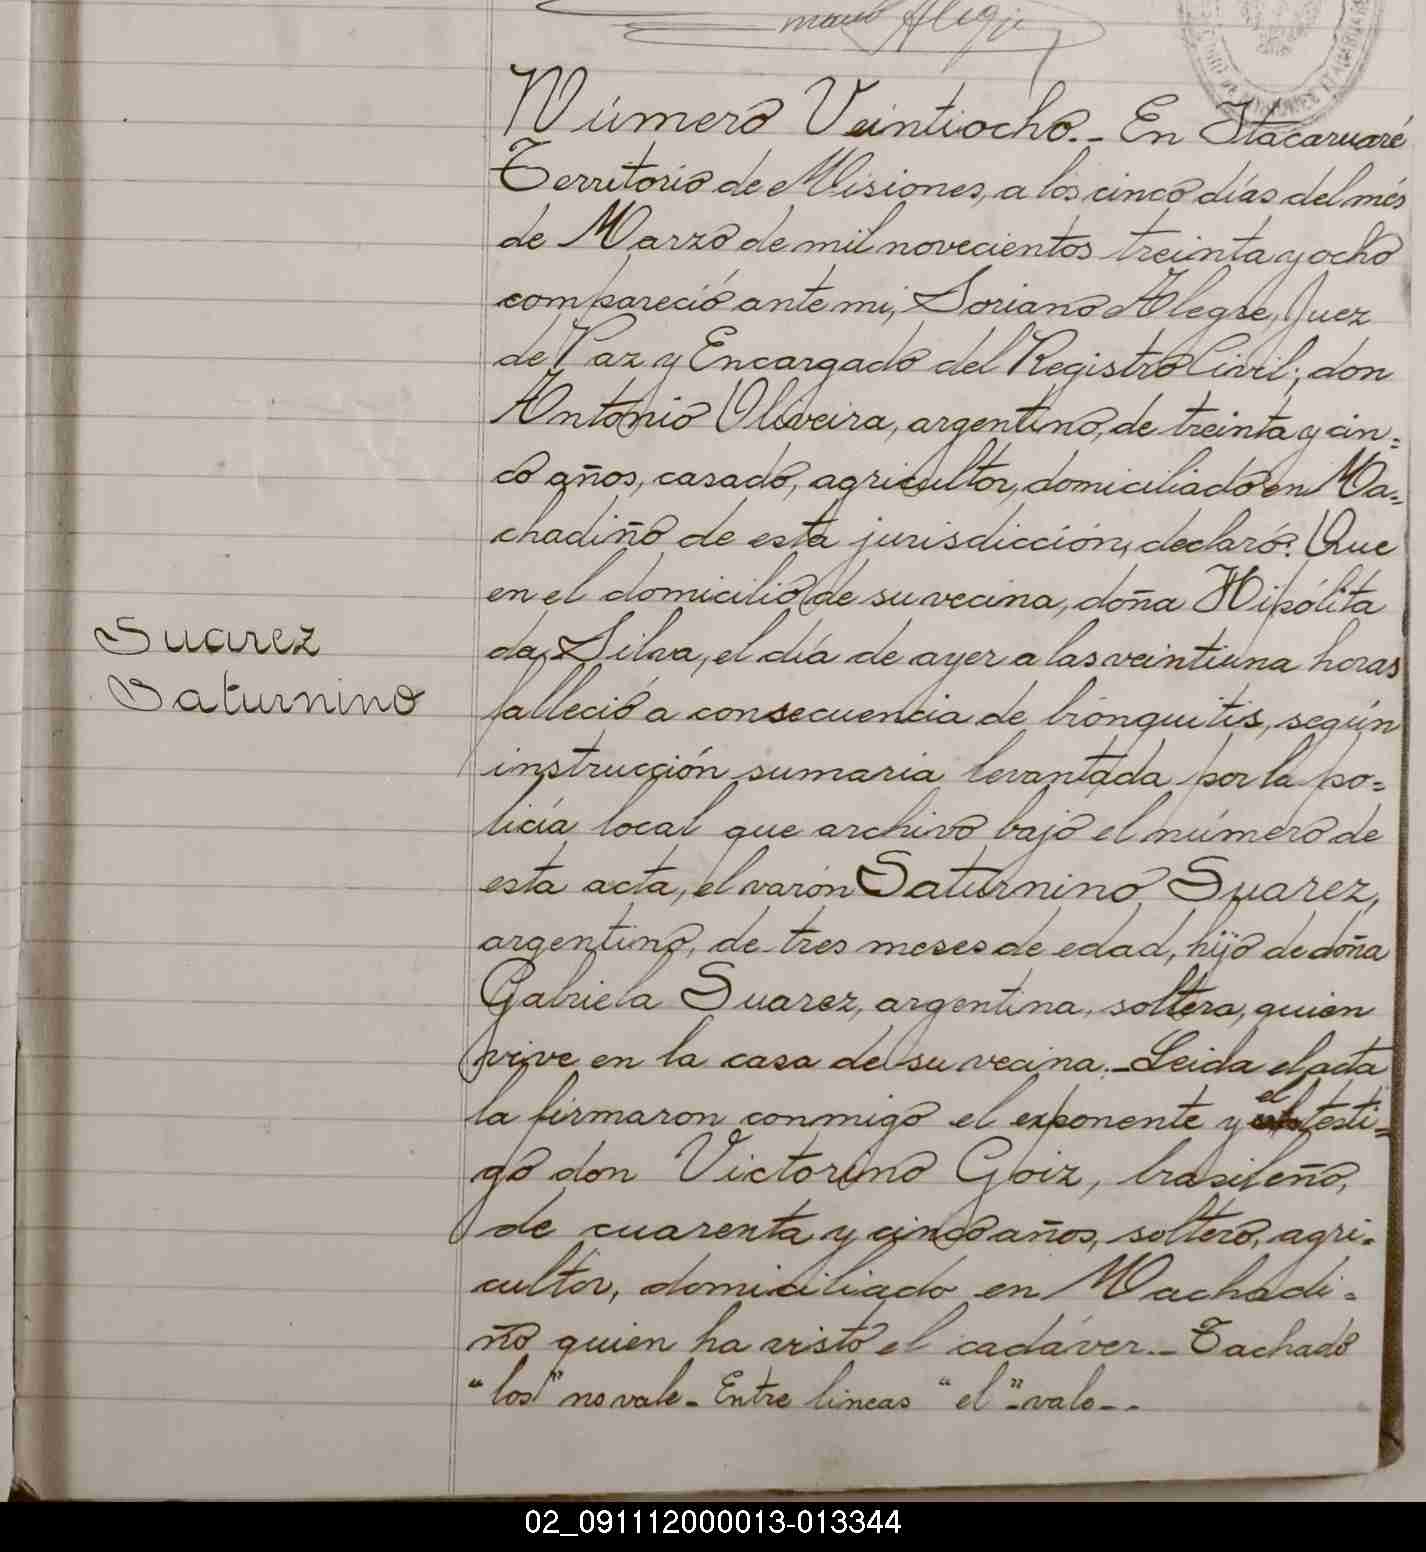 Número Veintiocho.- En Itacaruaré
Territorio de Misiones, a los cinco días del més
de Marzo de mil novecientos treinta y ocho
compareció ante mi, Soriano Alegre, Juez
de Paz y Encargado del Registro Civil; don
Antonio Oliveira, argentino, de treinta y cin=
co años, casado, agricultor, domiciliado en Ma=
chadiño de esta jurisdicción, declaró: Que
en el domicilio de su vecina, doña Hipólita
da Silva, el día de ayer a las veintiuna horas
Suarez
Saturnino
falleció a consecuencia de bronquitis, según
instrucción sumaria levantada por la po=
licía local que archivo bajo el número de
esta acta, el varón Saturnino Suarez,
argentino, de tres meses de edad, hijo de doña
Gabriela Suarez, argentina, soltera, quien
vive en la casa de su vecina.- Leida el acta
la firmaron conmigo el exponente y el testi=
go don Victorino Goiz, brasileño,
de cuarenta y cinco años, soltero, agri=
cultor, domiciliado en Machadi=
ño quien ha visto el cadáver.- Tachado
"los" no vale - Entre lineas "el" - vale - -
02_091112000013-013344